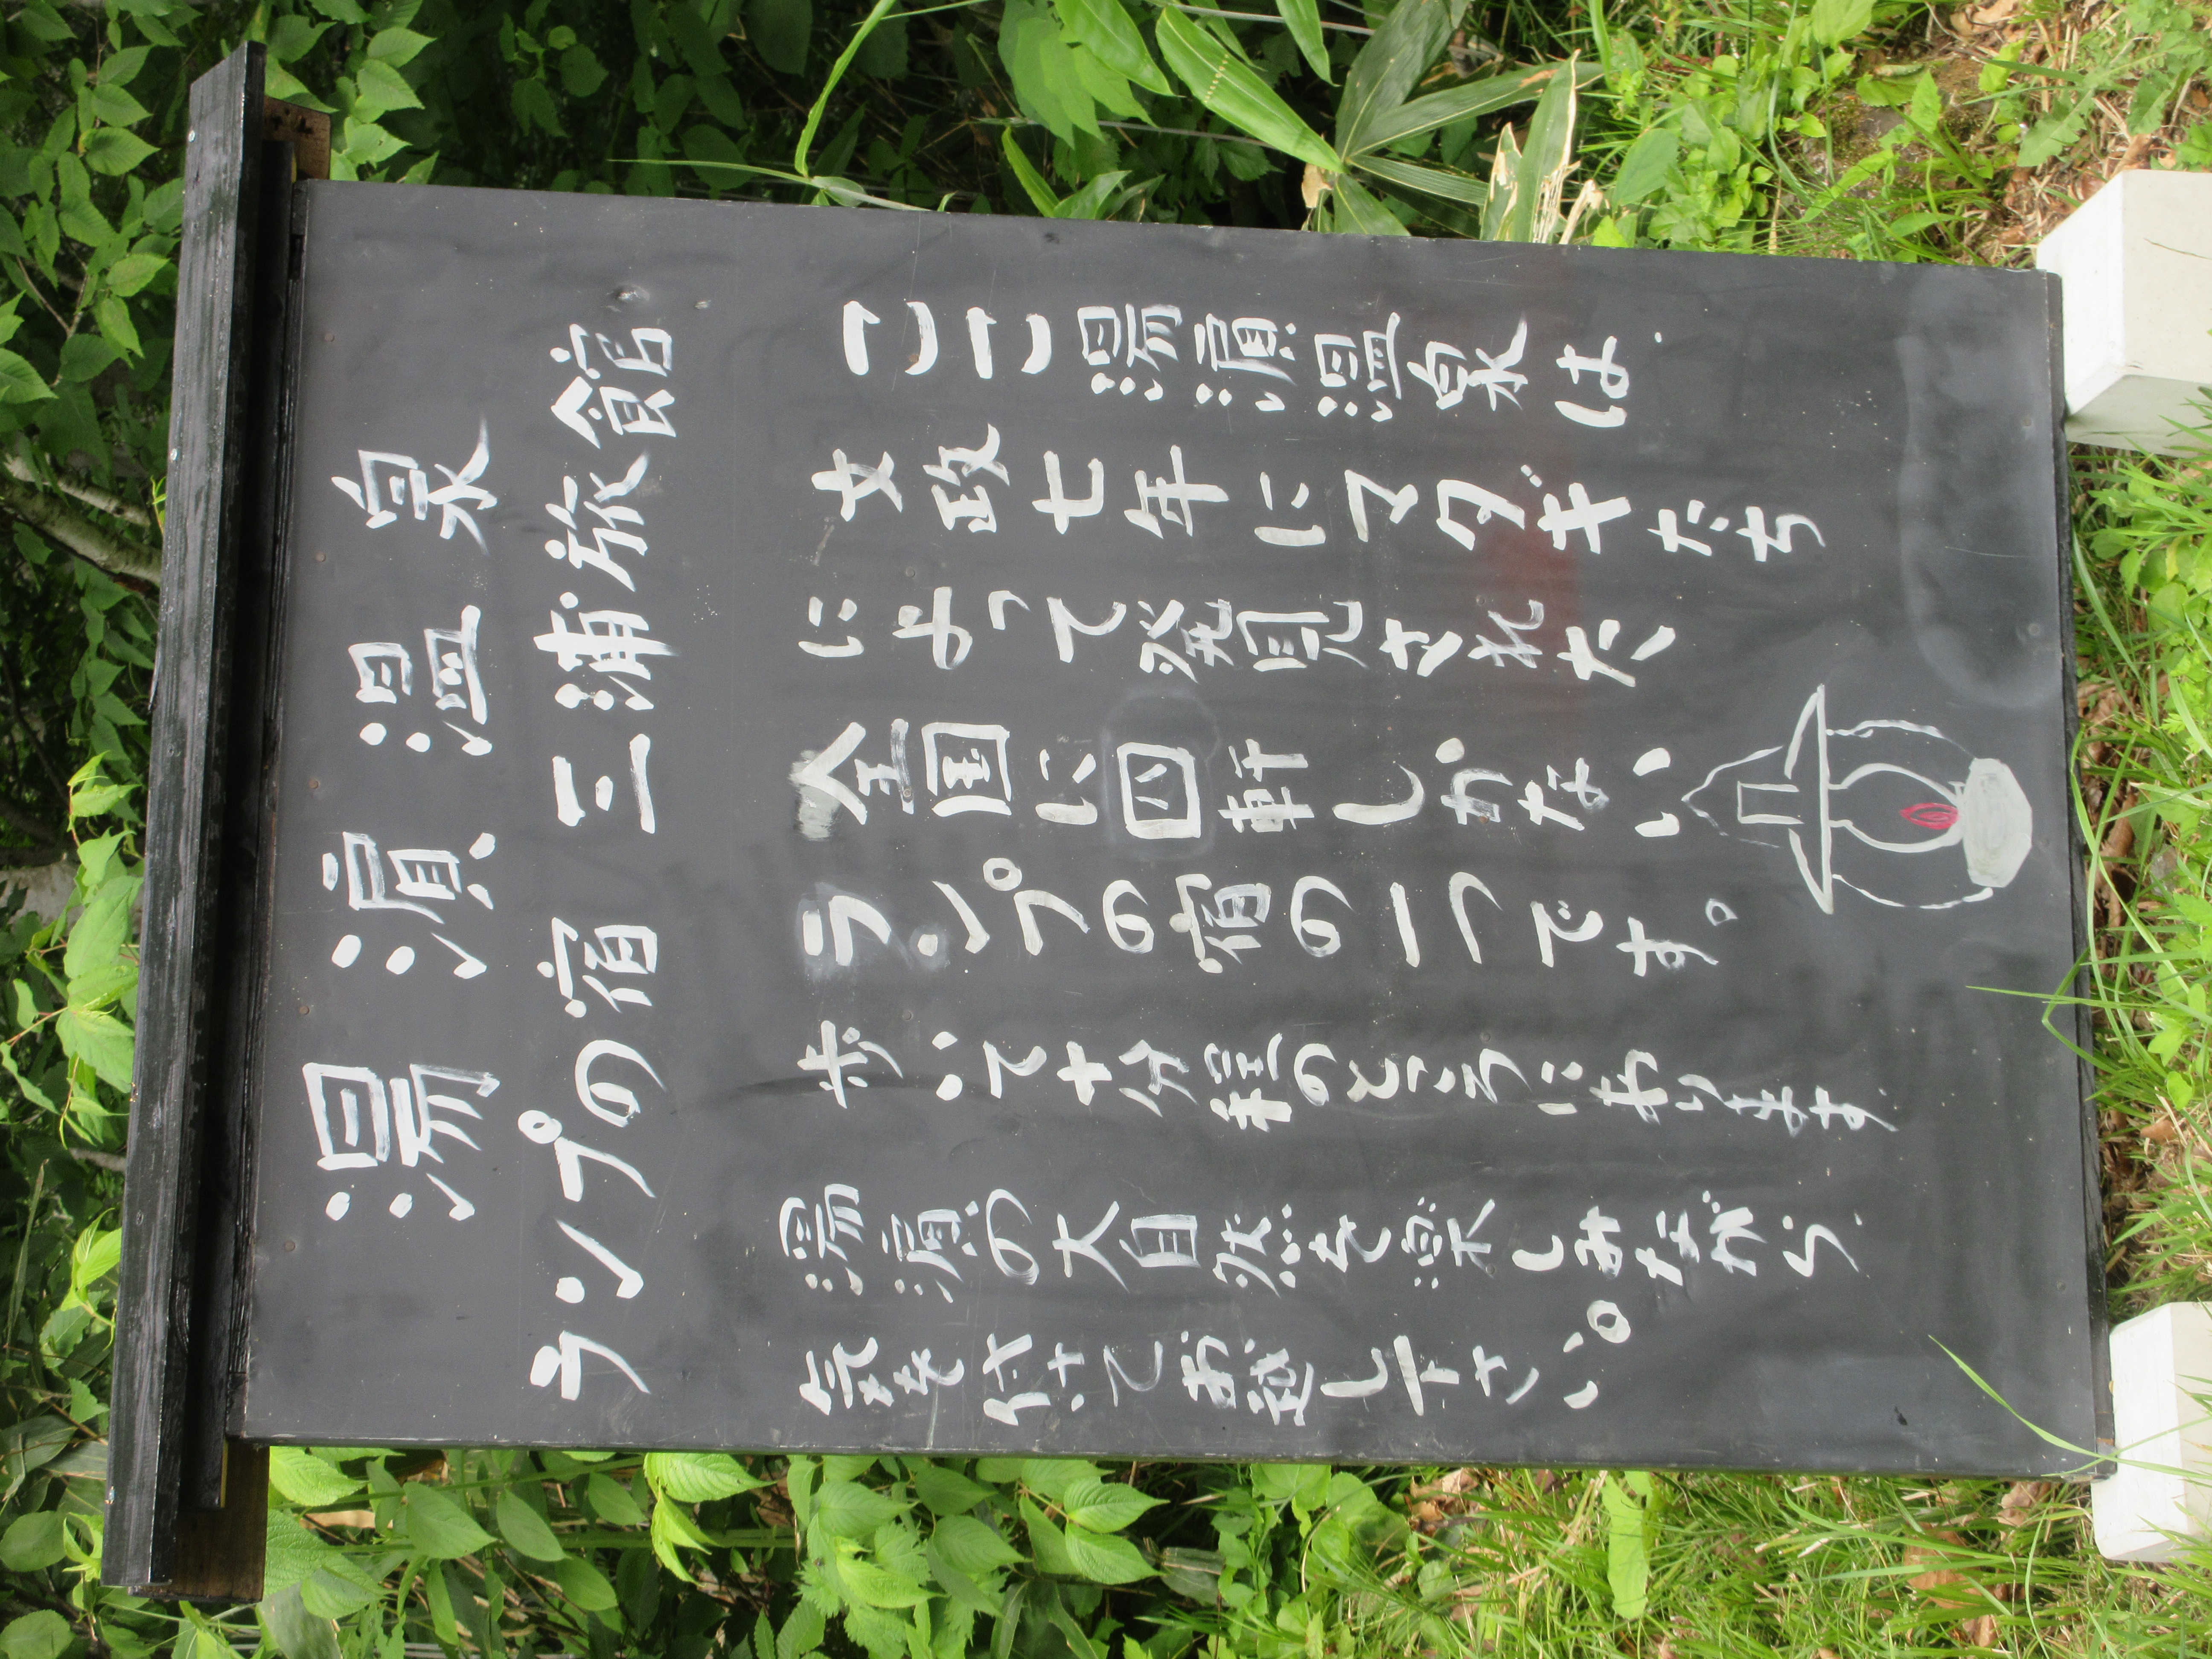 湯浜温泉
ランプの宿 三浦旅館
ここ湯浜温泉は
文政七年にマタギたち
によって発見された、
全国に四軒しかない
ランプの宿の一つです。
歩いて十分程のところにあります
湯浜の大自然を楽しみながら
気を付けてお越し下さい。